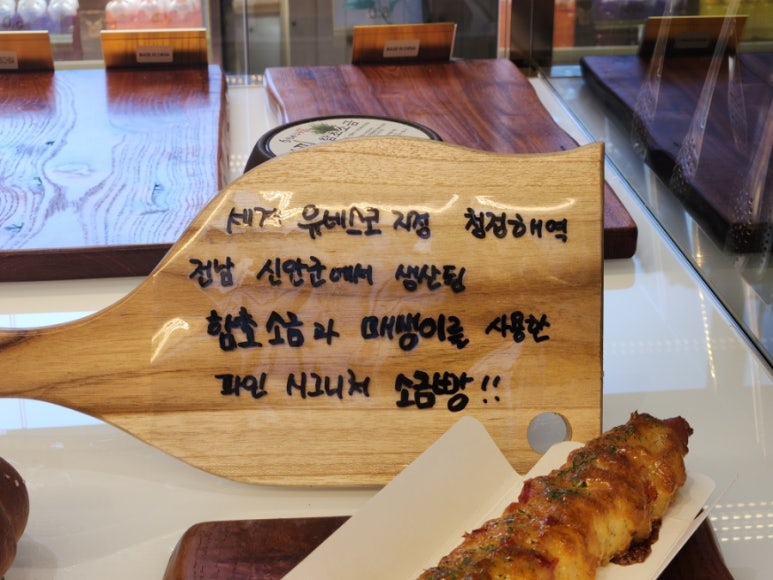 MADE IN CHINA
MADE IN CHINA
함초소금
세계 유네스코 지정 청정해역
전남 신안군에서 생산된
함초 소금과 매생이를 사용한
파인 시그니처 소금빵!!